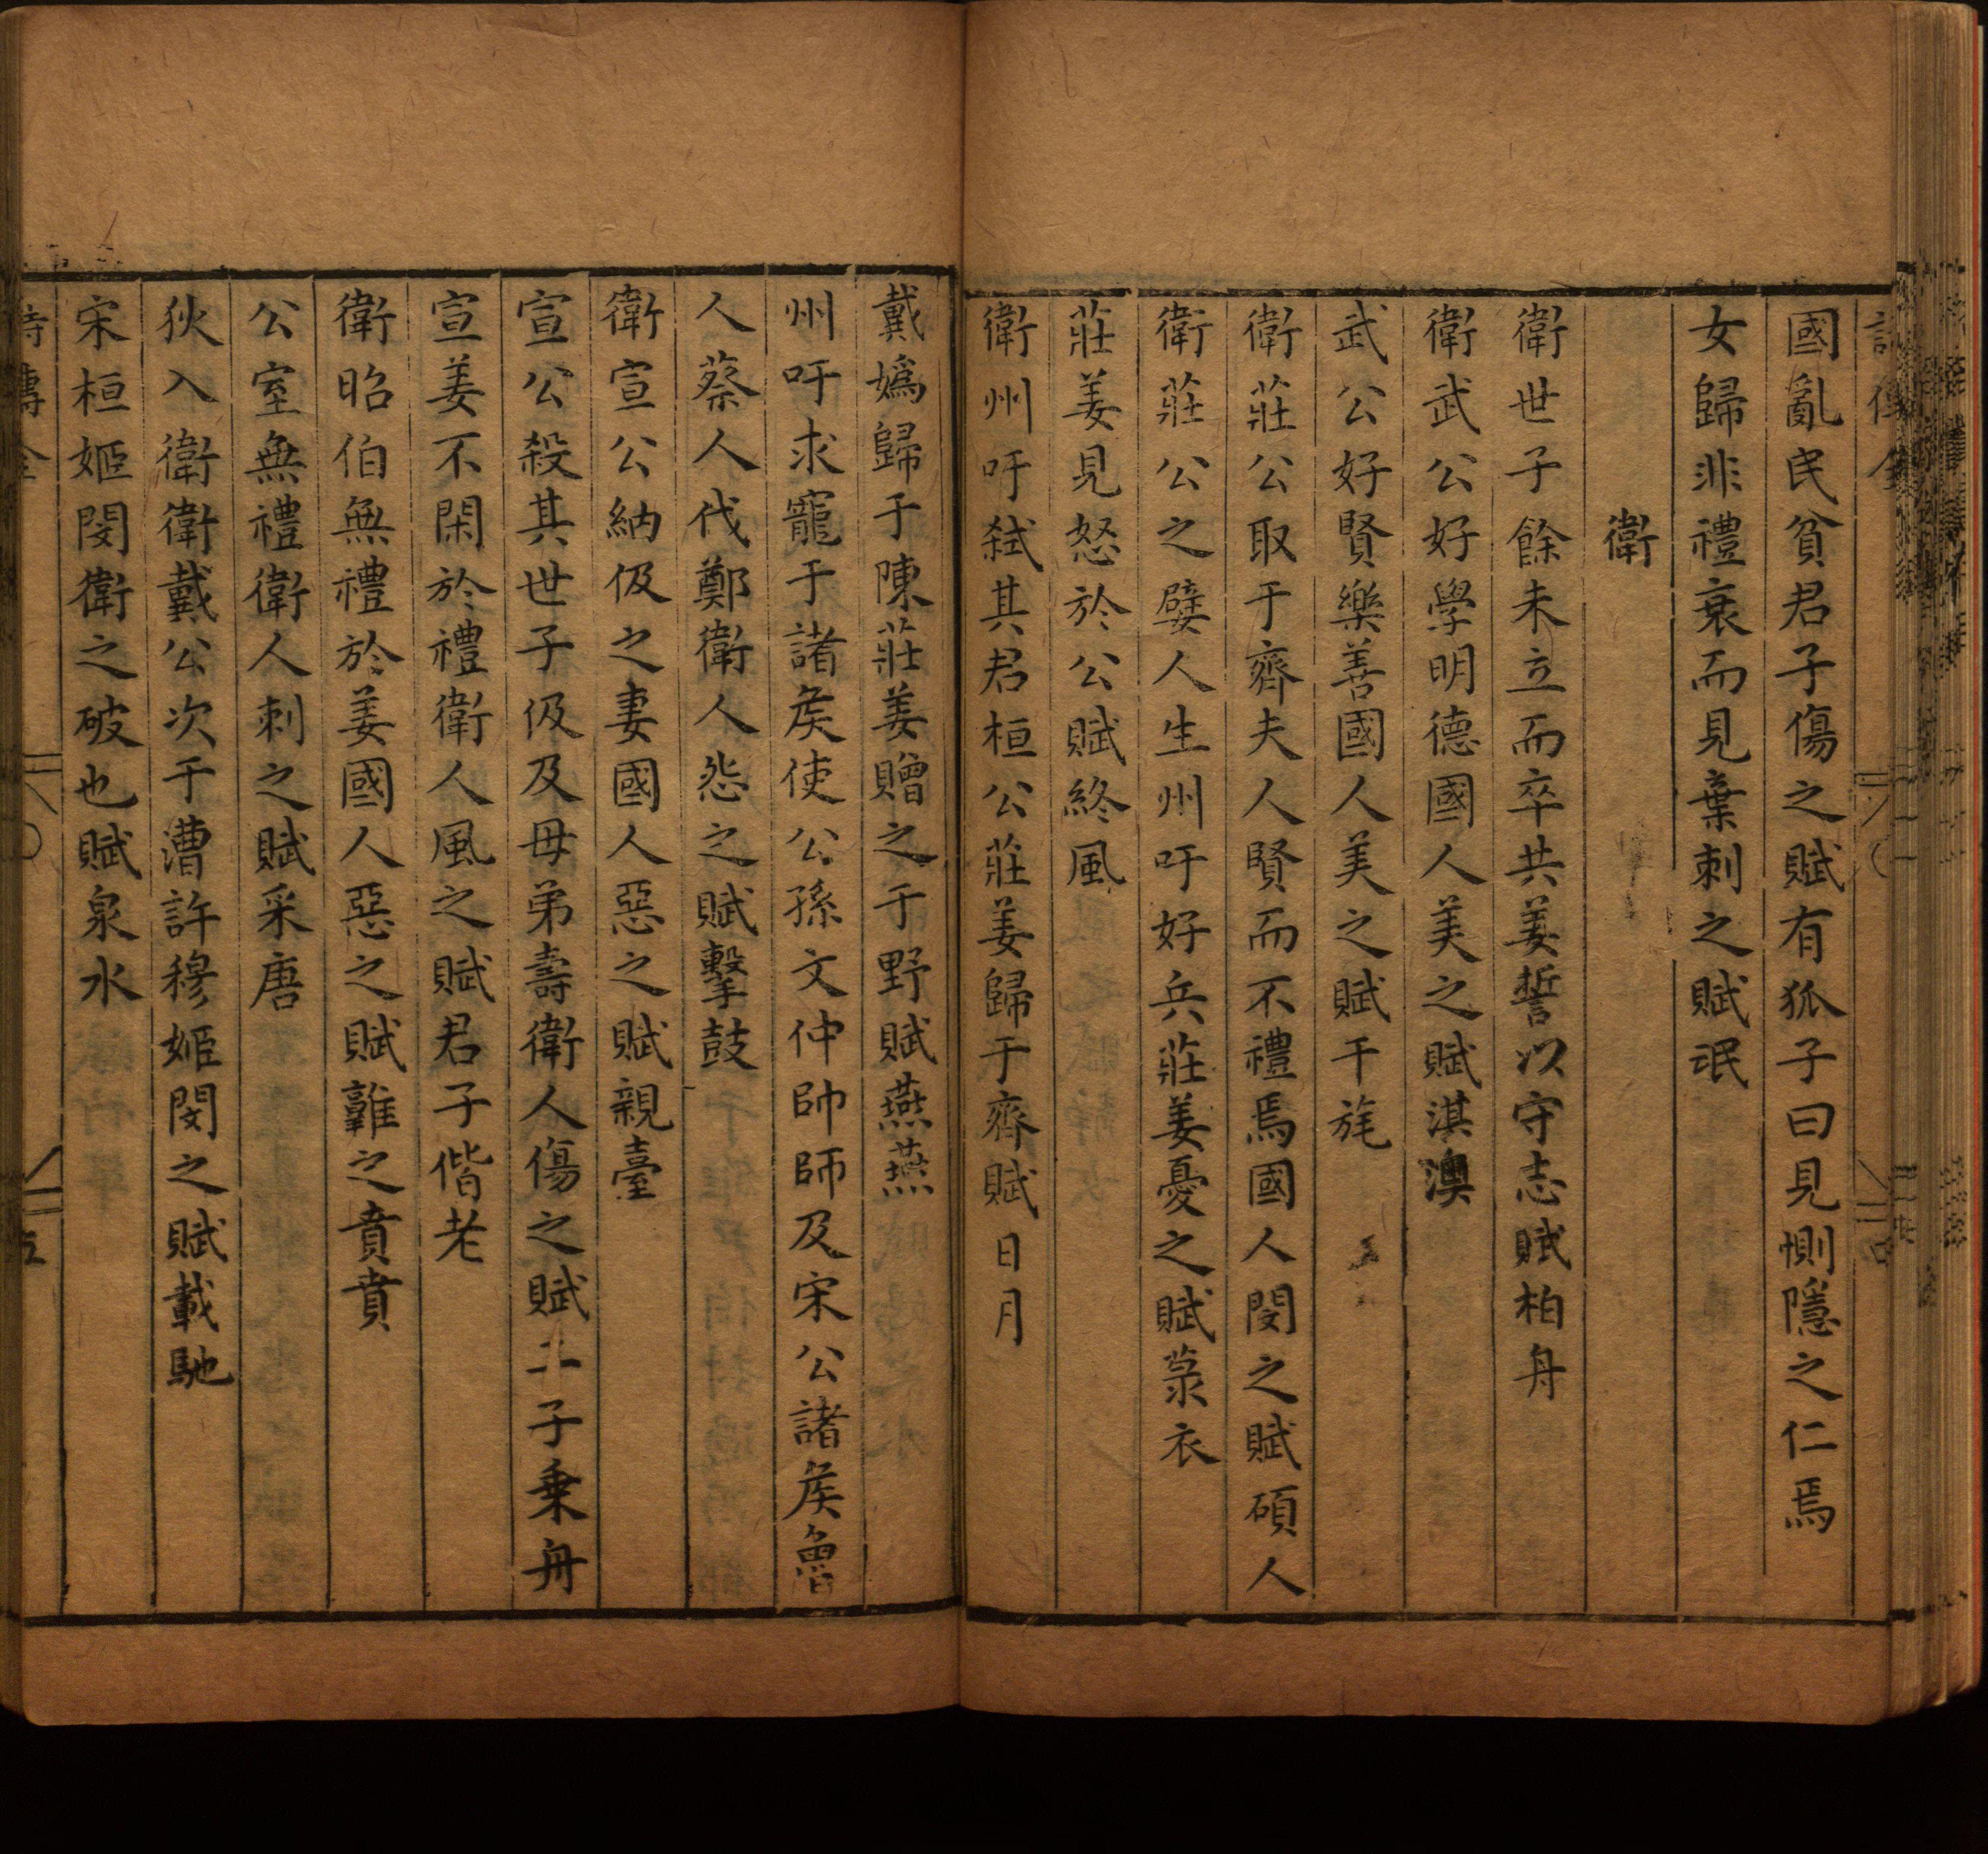 國亂民貧君子傷之賦有狐子曰見惻隱之仁焉
女歸非禮衰而見棄刺之賦氓
衛
衛世子餘未立而卒共姜誓以守志賦柏舟
衛武公好學明德國人美之賦淇澳
武公好賢樂善國人美之賦干旄
衛莊公取于齊夫人賢而不禮焉國人閔之賦碩人
衛莊公之嬖人生州吁好兵莊姜憂之賦菉衣
莊姜見怒於公賦終風
衛州吁弒其君桓公莊姜歸于齊賦日月
戴媯歸于陳莊姜贈之于野賦燕燕
州吁求寵于諸矦使公孫文仲帥師及宋公諸矦魯
人蔡人伐鄭衛人怨之賦擊鼓
衛宣公納伋之妻國人惡之賦親臺
宣公殺其世子伋及母弟壽衛人傷之賦二子乗舟
宣姜不閑於禮衛人風之賦君子偕老
衛昭伯無禮於姜國人惡之賦鶉之賁賁
公室無禮衛人刺之賦采唐
狄入衛衛戴公次于漕許穆姬閔之賦載馳
宋桓姬閔衛之破也賦泉水